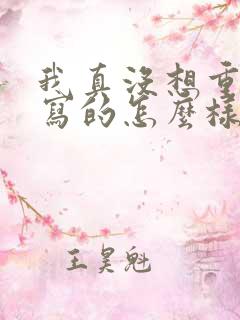 我真没想重
写的怎麼樣
王昊魁